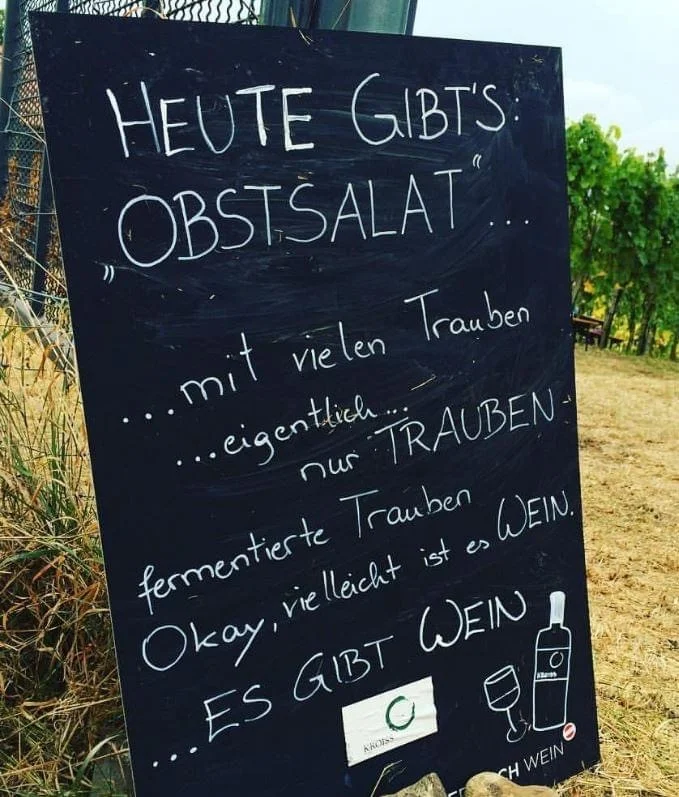 HEUTE GIBT'S:
„OBSTSALAT“...
...mit vielen Trauben
...eigentlich...
nur TRAUBEN-
fermentierte Trauben
Okay, vielleicht ist es WEIN.
...ES GIBT WEIN
KROISS
KROISS
CH WEIN